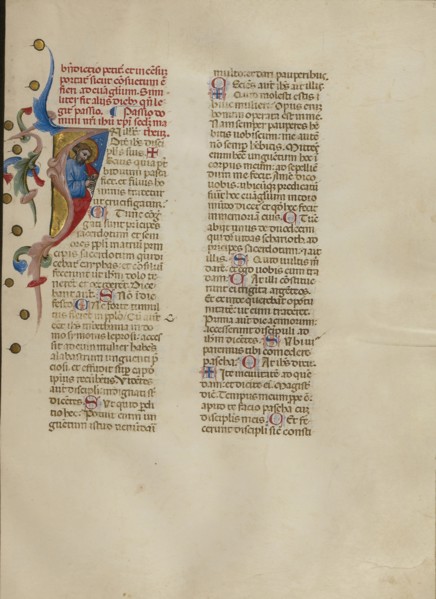 bn̄dictio petit̄. et incēsū
portat̄ sicut consuetum ē
fieri ad euāgliū. Simi
liter fit aliis dieb; qn̄ le
git̄ passio. Passio do
mini nr̄i ihū xp̄i sedm ma
In illo theum.
Dixit ihs disci
pulis suis
quia p
biduum pascha
fiet. et filius ho
minis tradetur
ut crucifigatur.
Tunc cōg
gati sunt principes
sacerdotum et seni
ores ppli in atriū prin
cipis sacerdotum qui di
cebat cayphas. et cōsiliū
fecerunt ut ihm dolo te
nerēt et occiderēt. Dice
bant aut. Nō i die
festo. Ne forte tumul
tus fieret in pplo. Cū aut
eēt ihs in bethania in do
mo simonis leprosi: acces
sit ad eum mulier habēs
alabastrum unguenti p̄ci
osi. et effudit sup caput
ipius recūbētis. Videtes
aut discipli: indignati st
dicetes. Ut quid pdi
tio hec: Potuit enim un
guentum istud uenūdari
multo: et dari pauperibus.
Sciens aut ihs ait illis.
Quid molesti estis i
huic mulieri: Opus enī
bonum operata est in me.
Nam semper pauperes ha
bētis uobiscum: me autē
nō semp hēbitis. Mittēs
enim hec unguentum hoc i
corpus meum: ad sepeliē
dum me fecit. Amē dico
uobis: ubicūqi predicatū
fuit hoc euāglium in toto
mūdo dicet et qd hec fecit
in memoriā eius. Tūc
abiit unus de duodecim
qui dr̄ iudas scharioth ad
principes sacerdotum. et ait
illis. Quid uultis m
dare. et ego uobis eum tra
dam. At illi cōstitue
runt ei triginta argēteos.
Et exinde querebat oportu
nitatē ut eum traderet.
Prima autē die azimorum:
accesserunt discipuli ad
ihm dicētes. Ubi uis
paremus tibi comedere
pascha. At ihs dixit.
Ite in ciuitatē ad que
dam: et dicite ei. Magister
dic. Tempus meum ppe ē:
apud te facio pascha cū
discipulis meis. Et fe
cerunt discipuli sic consti